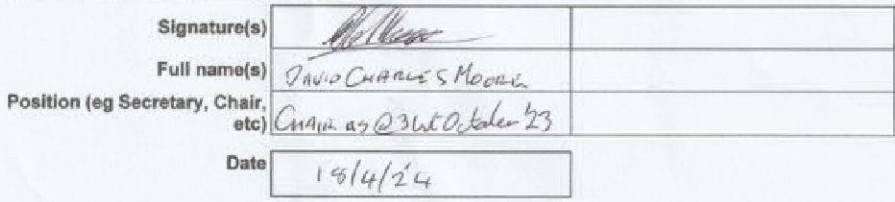 Signature(s)
Full name(s) DAVID CHARLES MOORE
Position (eg Secretary, Chair,
etc) CHAIR as @ 31st October '23
Date 18/4/24